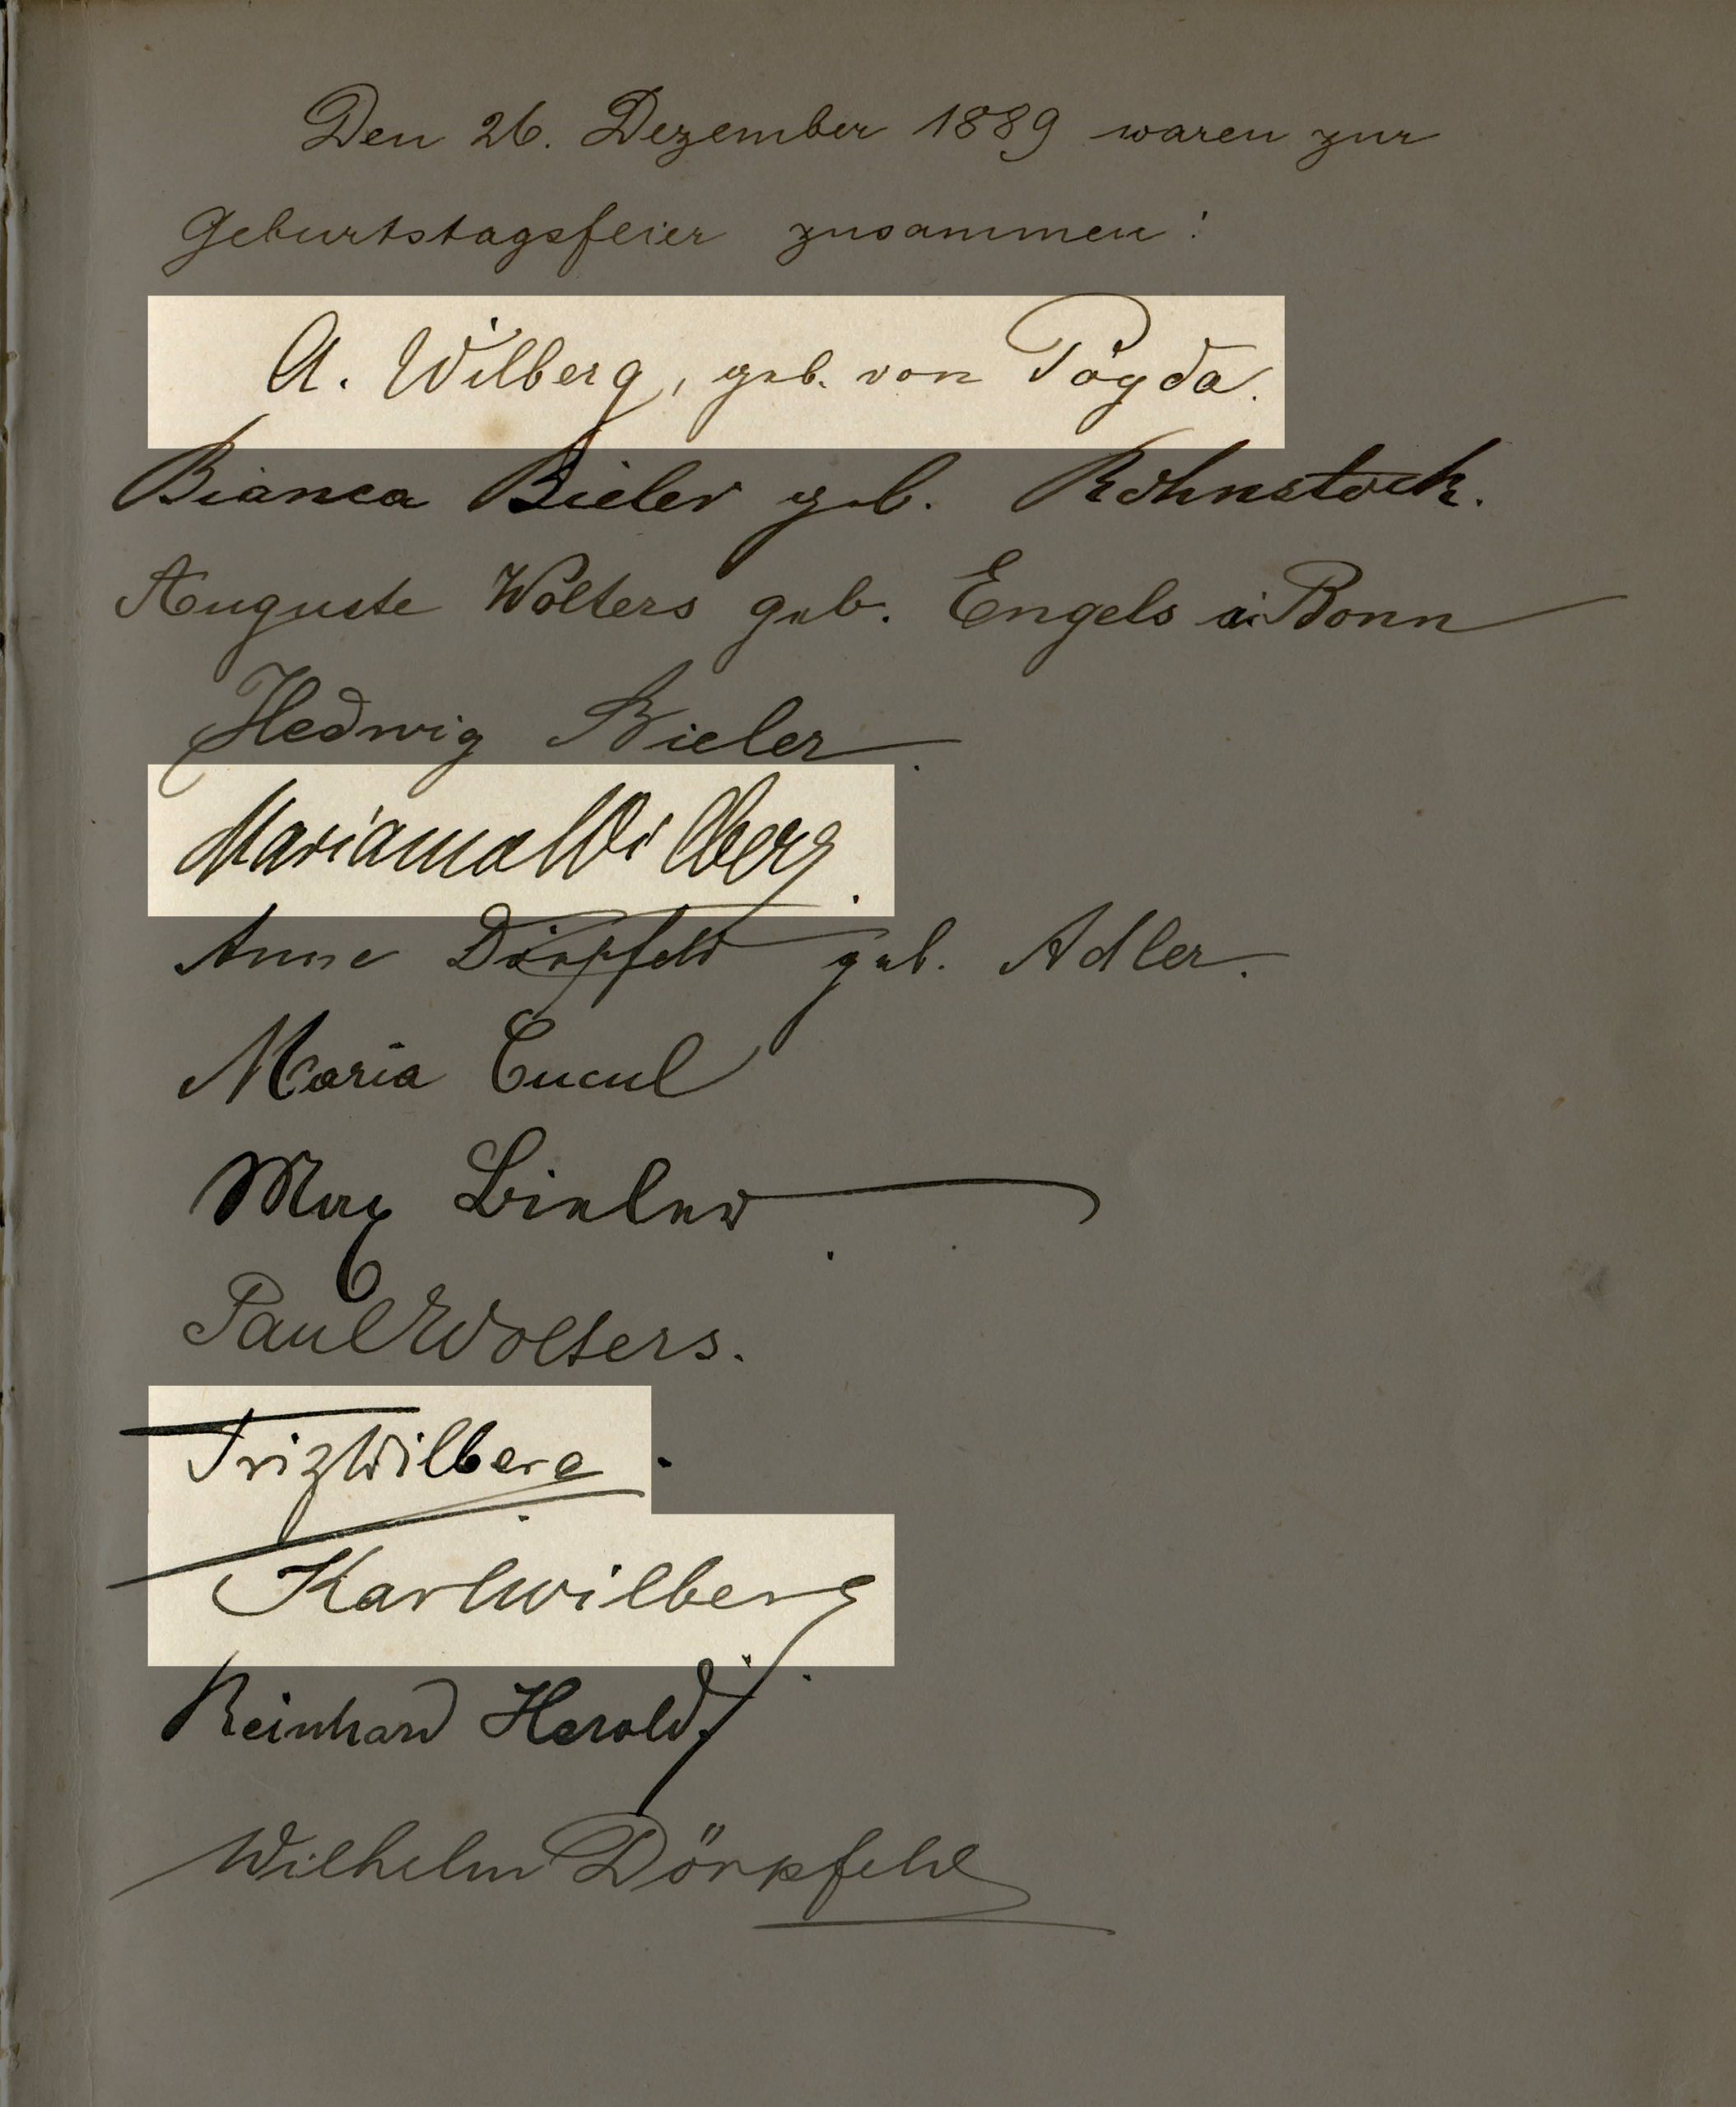 Den 26. Dezember 1889 waren zur
Geburtstagsfeier zusammen:
A. Wilberg, geb. von
Bianca Bieler geb. Rohnstock.
Auguste Wolters geb. Engels Bonn
Hedwig Bieler.
Marianna Wilberg.
Anne Dörpfeld geb. Adler.
Maria Cucul
Max Bieler
Paul Wolters.
Friz Wilberg.
Karl Wilberg
Reinhard Herold.
Wilhelm Dörpfeld